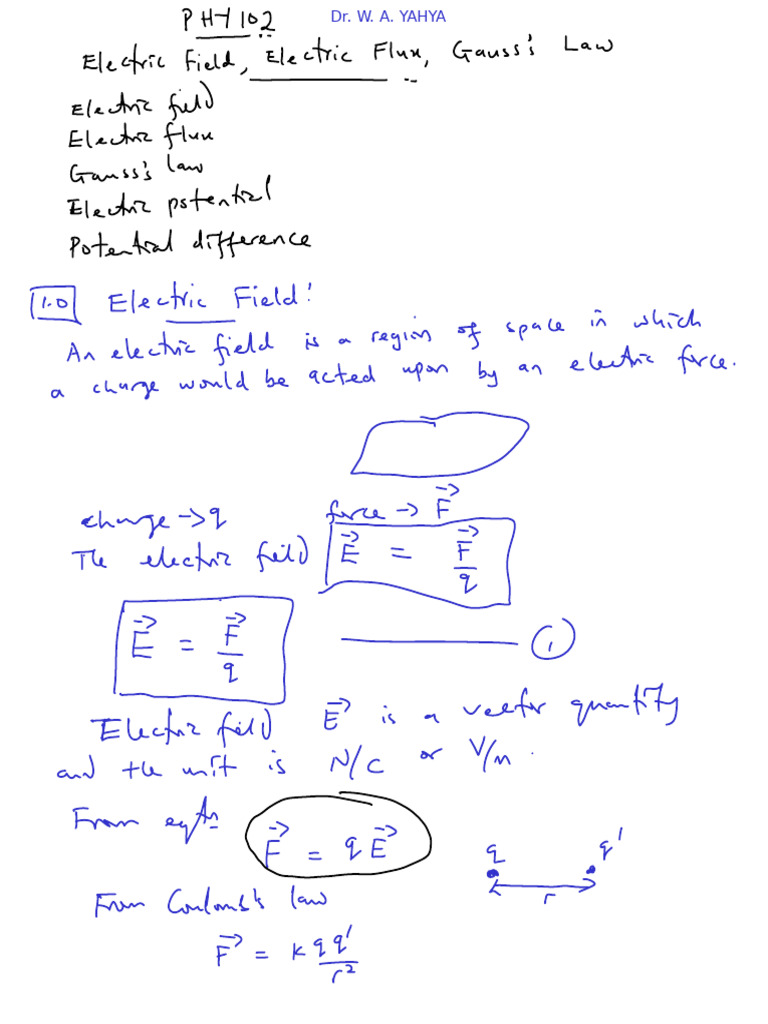 PHY 102 Dr. W. A. YAHYA
Electric Field, Electric Flux, Gauss's Law
Electric field
Electric flux
Gauss's law
Electric potential
Potential difference
1.0 Electric Field!
An electric field is a region of space in which
a charge would be acted upon by an electric force.
charge → q force → F⃗
The electric field E⃗ = F⃗/q
E⃗ = F⃗/q ——— (1)
Electric field E⃗ is a vector quantity
and the unit is N/C or V/m.
From eqtn F⃗ = qE⃗
q q'
r
From Coulomb's law
F⃗ = k qq'/r²